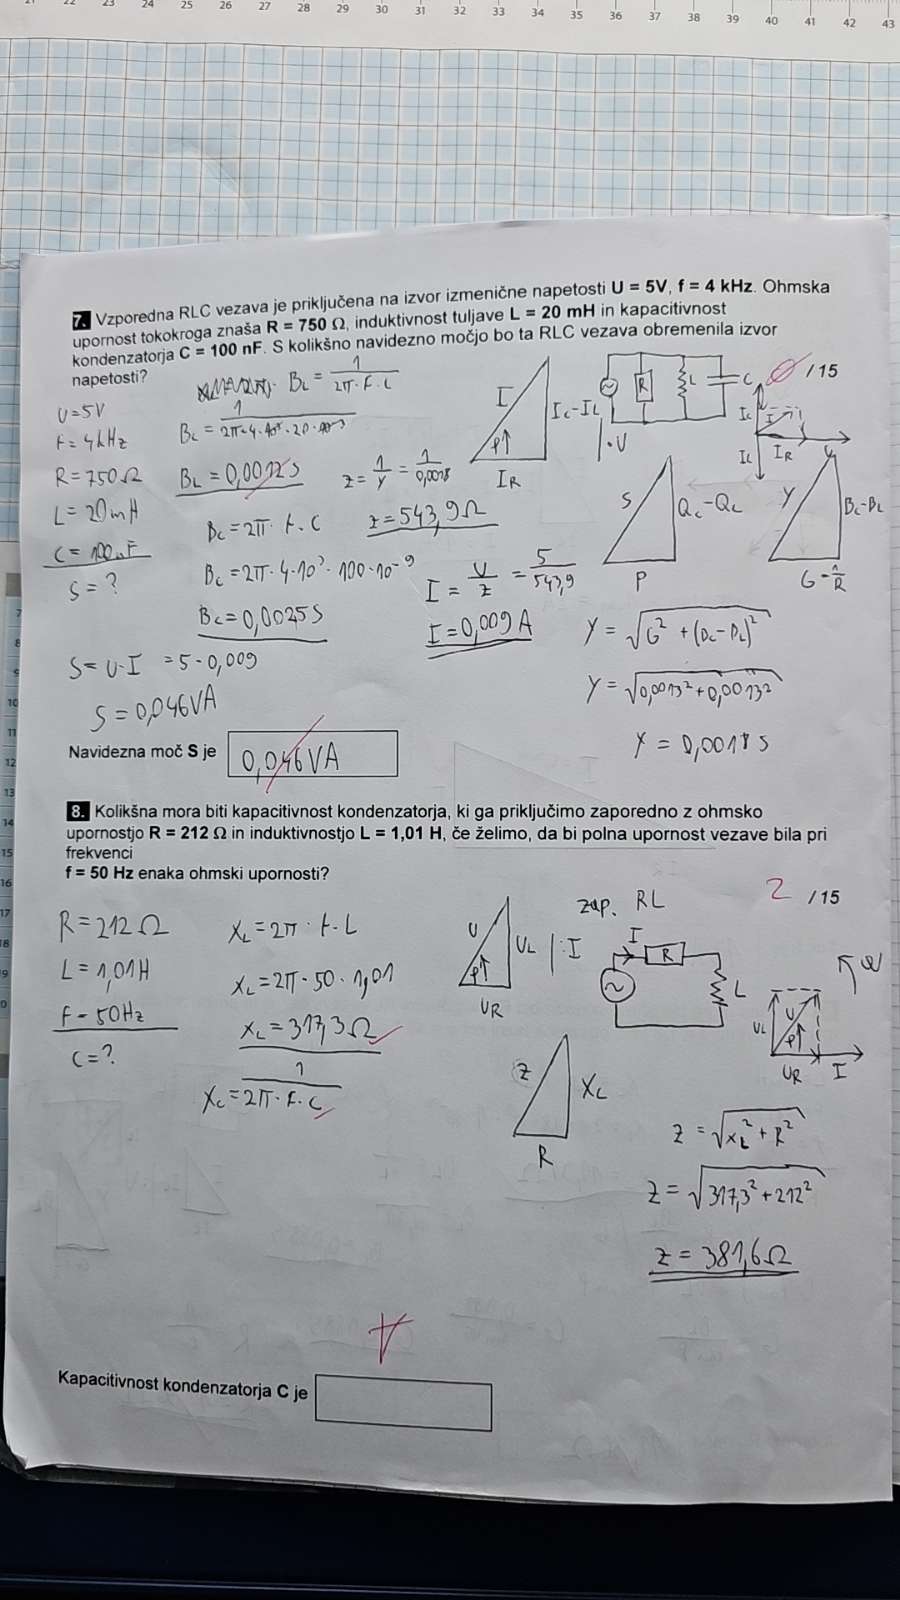 22 23 24 25 26 27 28 29 30 31 32 33 34 35 36 37 38 39 40 41 42 43
7. Vzporedna RLC vezava je priključena na izvor izmenične napetosti U = 5V, f = 4 kHz. Ohmska
upornost tokokroga znaša R = 750 Ω, induktivnost tuljave L = 20 mH in kapacitivnost
kondenzatorja C = 100 nF. S kolikšno navidezno močjo bo ta RLC vezava obremenila izvor
napetosti?
0 /15
U=5V
f=4kHz
R=750Ω
L=20mH
C=100nF
S=?
BL = 1/2π·f·L
BL = 1/2π·4·10³·20·10⁻³
BL=0,0012S
BC=2π·f·C
BC=2π·4·10³·100·10⁻⁹
BC=0,0025S
Z=1/Y=1/0,0018
Z=543,9Ω
I=U/Z=5/543,9
I=0,009A
I
IC-IL
φ
IR
R
L
C
|·U
IC
IL
IR
U
S
QC-QL
P
Y
BC-BL
G=1/R
Y=√G²+(BC-BL)²
Y=√0,0013²+0,0013²
Y=0,0018S
S=U·I=5·0,009
S=0,046VA
Navidezna moč S je 0,046VA
8. Kolikšna mora biti kapacitivnost kondenzatorja, ki ga priključimo zaporedno z ohmsko
upornostjo R = 212 Ω in induktivnostjo L = 1,01 H, če želimo, da bi polna upornost vezave bila pri
frekvenci
f = 50 Hz enaka ohmski upornosti?
2 /15
R=212Ω
L=1,01H
f=50Hz
C=?
XL=2π·f·L
XL=2π·50·1,01
XL=317,3Ω
XC=1/2π·f·C
U
UL
φ
UR
|:I
zap. RL
I
R
L
ω
UL
U
φ
UR
I
Z
XL
R
Z=√XL²+R²
Z=√317,3²+212²
Z=381,6Ω
Kapacitivnost kondenzatorja C je